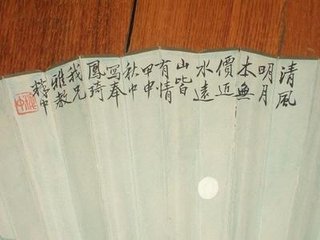 清風
明月
本無
價近
水遠
山皆
有情
甲申
秋中
寫奉
鳳琦
我兄
雅教
中